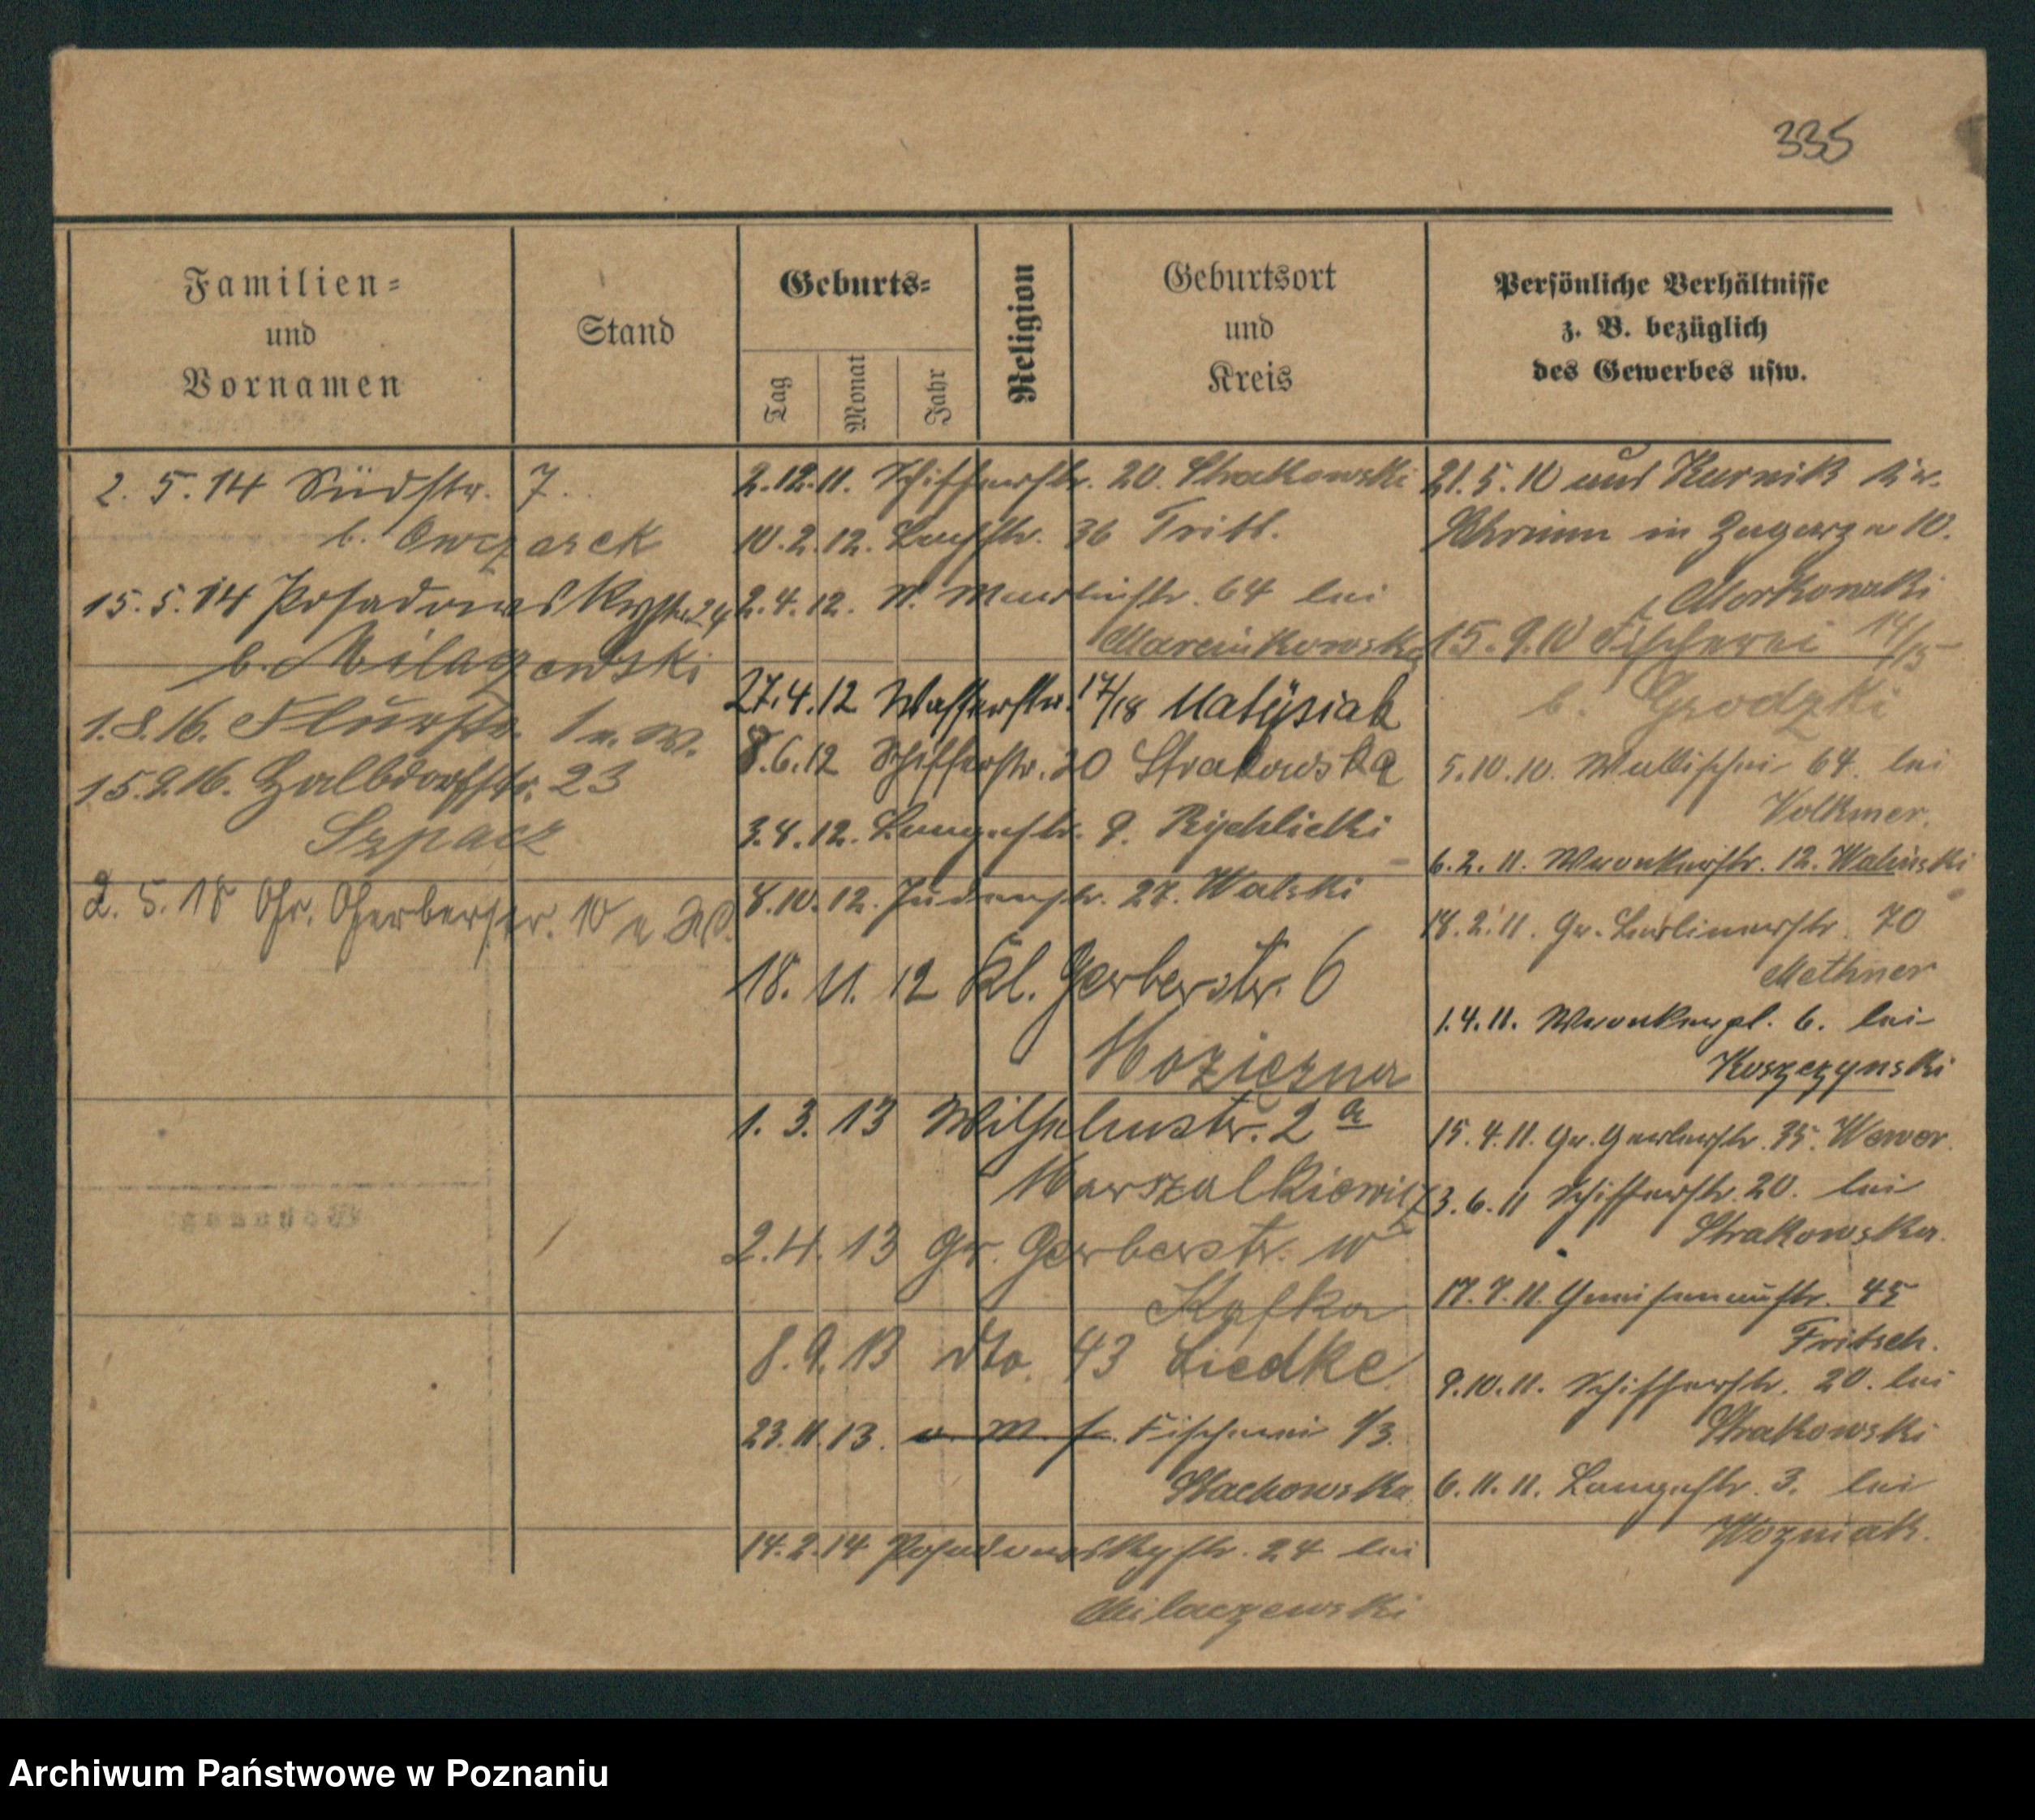 335
Familien=
und
Vornamen
Stand
Geburts=
Tag
Monat
Jahr
Religion
Geburtsort
und
Kreis
Persönliche Verhältnisse
z. B. bezüglich
des Gewerbes usw.
2. 5. 14 Südstr. 7.
b. Owczarek
15. 5. 14 Posadowskystr. 24
b. Milazewski
1. 8. 16. Flurstr. 1 a. W.
15. 9. 16. Halbdorfstr. 23
Szpacz
2. 5. 18 Gr. Gerberstr. 10 a W.
2. 12. 11. Schifferstr. 20. Strakowski
10. 2. 12. 36
2. 4. 12. 64 bei
Marcinkowska
27. 4. 12 Wasserstr. 17/18 Matysiak
8. 6. 12 Schifferstr. 20 Strakowska
3. 8. 12. Langestr. 9. Rychlicki
8. 10. 12. Judenstr. 27. Walski
18. 11. 12 Kl. Gerberstr. 6
1. 3. 13 Wilhelmstr. 2 a
Marszalkiewicz
2. 4. 13 Gr. Gerberstr. 10
Kafka
8. 9. 13 dto. 43 Liedke
23. 11. 13. Fischerei 1/3.
Stachowska
14. 2. 14 Posadowskystr. 24 bei
Milaczewski
21. 5. 10 aus Kurnik Kr.
Schrimm in Zagorze 10.
b. Morkowski
15. 9. 10 Fischerei 14/15
b. Grodzki
5. 10. 10. Wallischei 64. bei
Volkmer.
6. 2. 11. Wronkerstr. 12. Walinski
18. 2. 11. Gr. Berlinerstr. 70
Methner
1. 4. 11. Wronkerpl. 6. bei
Koszczynski
15. 4. 11. Gr. Gerberstr. 35. Wewer.
3. 6. 11 Schifferstr. 20. bei
Strakowska.
17. 7. 11. Gneisenaustr. 45
Fritsch.
9. 10. 11. Schifferstr. 20. bei
Strakowski
6. 11. 11. Langestr. 3. bei
Wozniak.
Archiwum Państwowe w Poznaniu